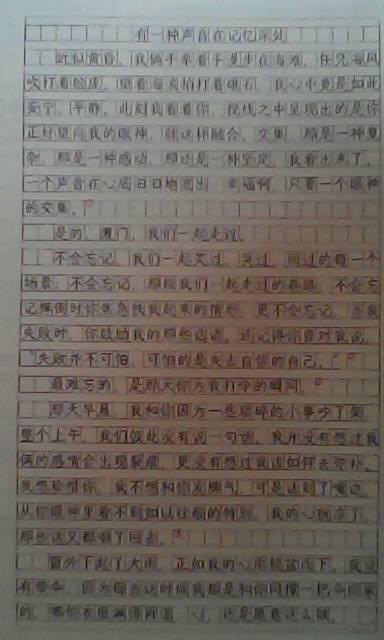 有一种声音在记忆深处
近似黄昏，我俩手牵着手漫步在海滩，任凭海风
吹打着脸庞，望着海浪拍打着礁石，我心中竟是如此
安宁、平静。此刻我看着你，视线之中呈现出的是你
正好望向我的眼神，就这样融合、交集，那是一种复
杂，那是一种感动，那还是一种坚定，我看出来了。
一个声音在心底日日地道出：幸福啊，只要一个眼神
的交集。
是的，厦门，我们一起走过。
不会忘记，我们一起笑过、哭过、闹过的每一个
场景，不会忘记，那段我们一起走过的春路，不会忘
记摔倒时你焦急扶我起来的情形，更不会忘记，当我
失败时，你鼓励我的那些话语。还记得你曾对我说：
“失败并不可怕，可怕的是失去自信的自己。”
最难忘的，是那天你为我打伞的瞬间。
那天早晨，我和你因为一些琐碎的小事吵了架，
整个上午，我们彼此没有说一句话。我并没有想过我
俩的感情会出现裂痕，更没有想过我该如何去弥补。
我想珍惜你，我不想和你发脾气，可是话到了嘴边，
从你眼神里看不到如以往般的特别，我的心凉凉了，
那些话又都咽了回去。
窗外下起了大雨，正如我的心雨倾盆而下。我没
有带伞，因为
的，哪怕衣服淋得再湿，心，还是愿意这么做。